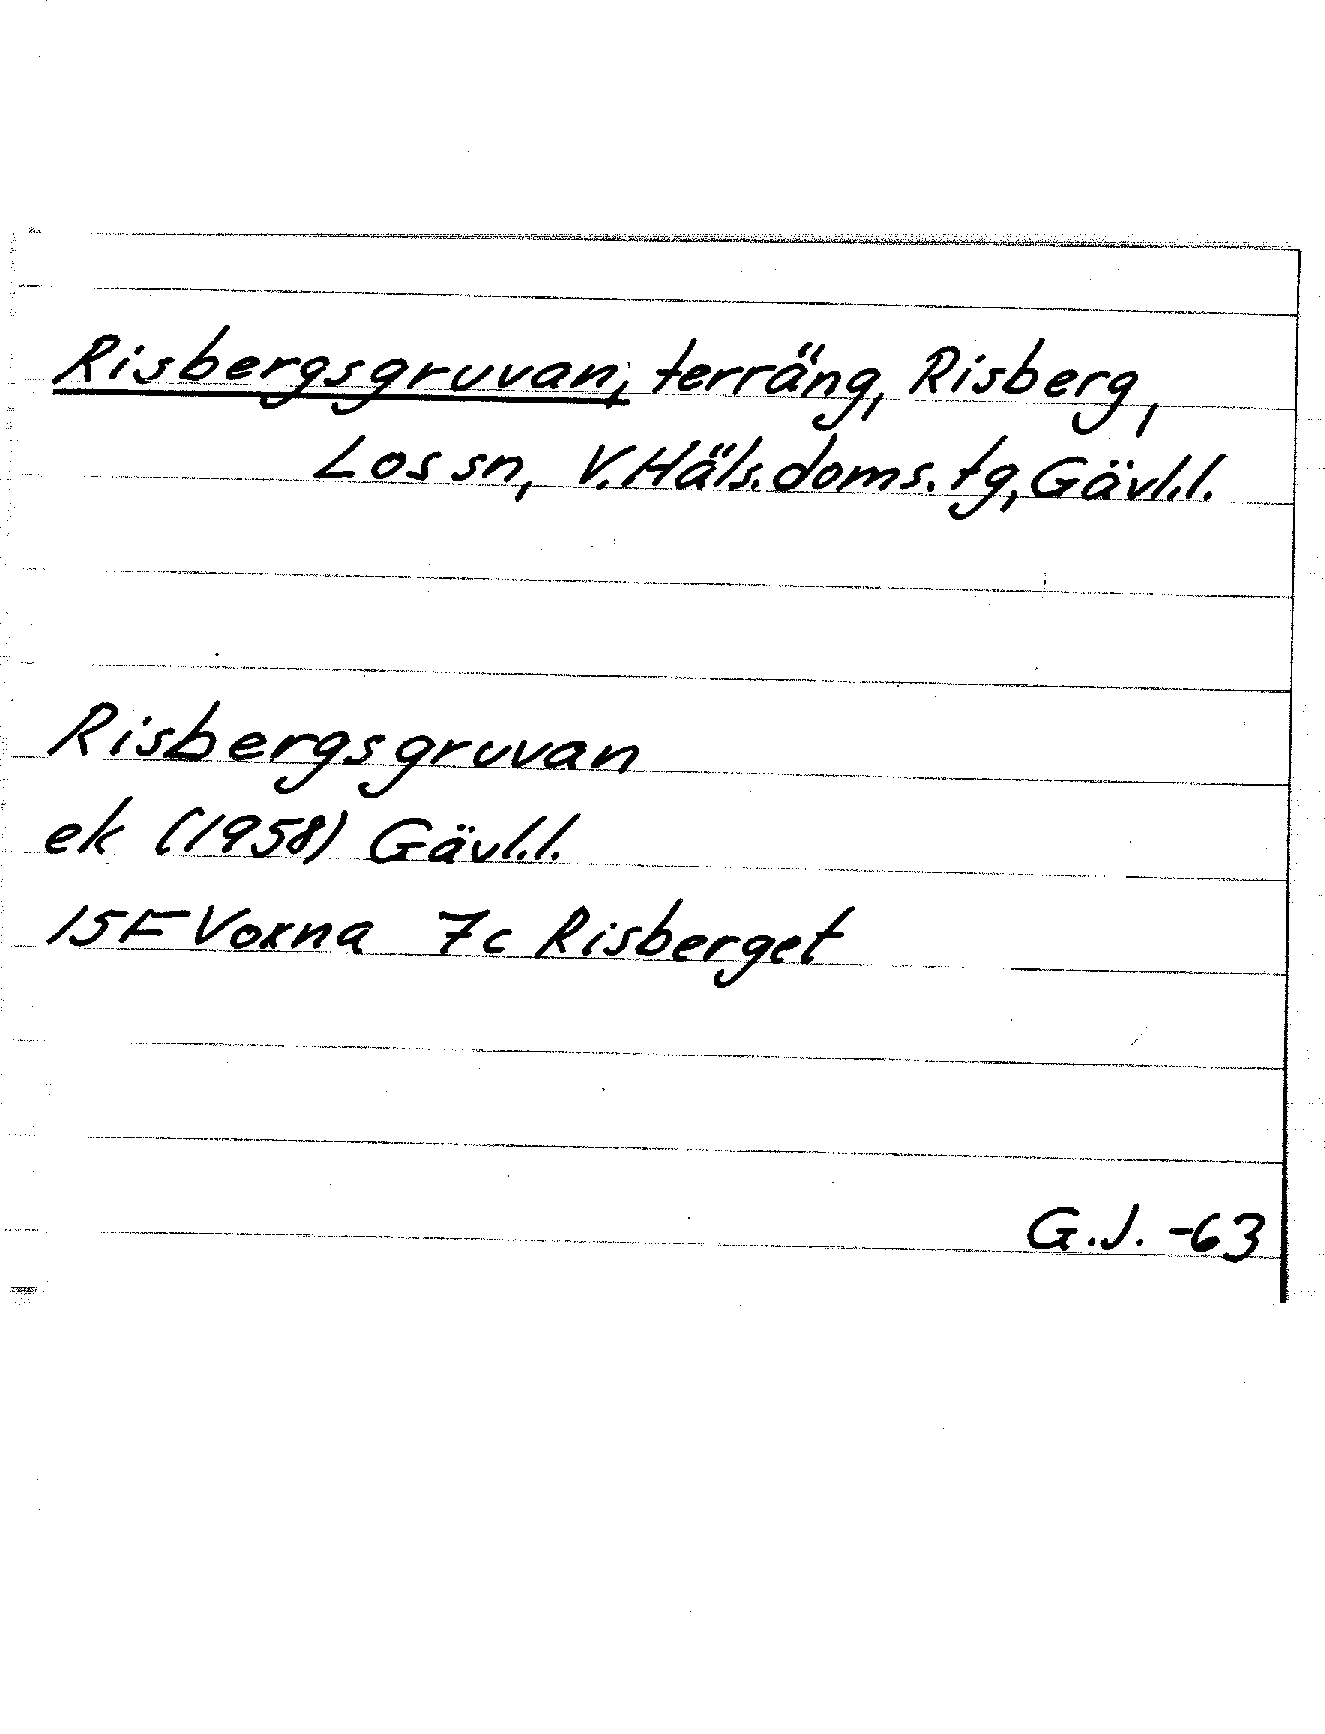 Risbergsgruvan, terräng, Risberg,
Los sn, V. Häls. doms. tg, Gävl.l.
Risbergsgruvan
ek (1958) Gävl.l.
15F Voxna 7c Risberget
G.J. -63